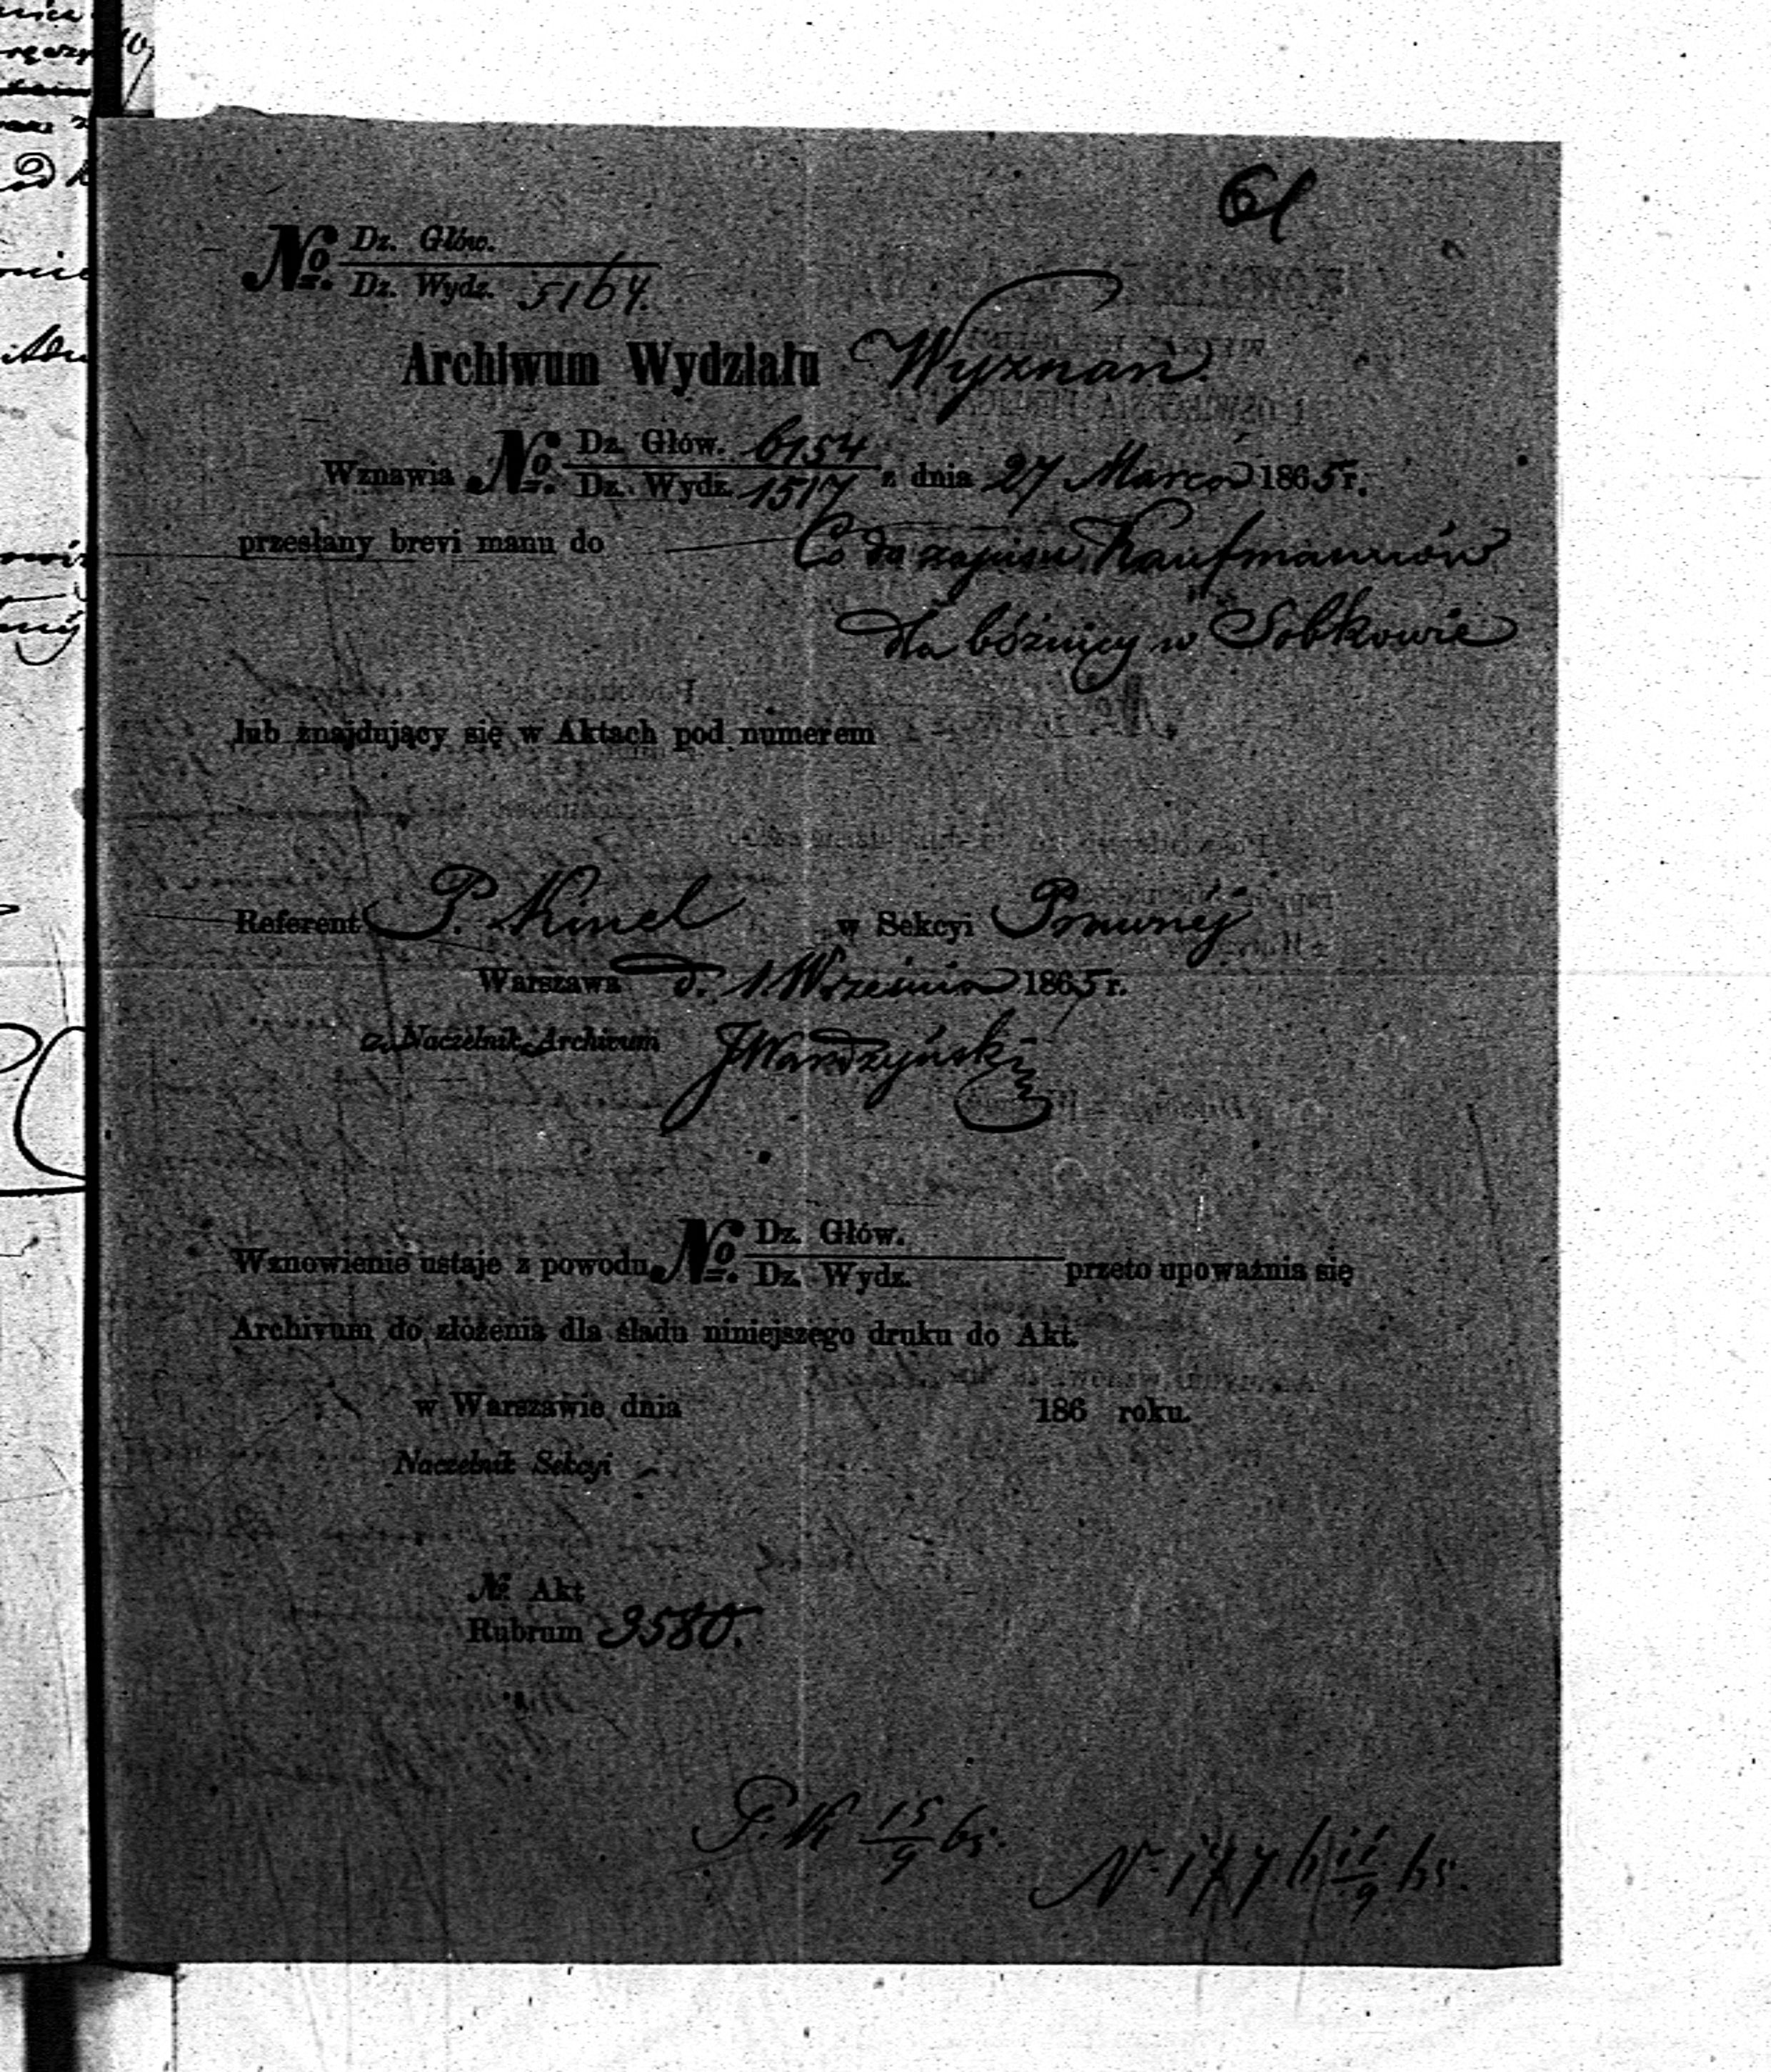 61
№ Dz. Głów.
Dz. Wydz. 5164.
Archiwum Wydziału Wyznań.
Wznawia № Dz. Głów. 6154
Dz. Wydz. 1517 z dnia 27 Marca 1865 r.
przesłany brevi manu do Co do zapisu Kaufmannów
dla bóżnicy w Sobkowie
lub znajdujący się w Aktach pod numerem
Referent P. Kinel w Sekcyi
Warszawa d. 1 Września 1865 r.
z. Naczelnik Archivum JWardzyński
Wznowienie ustaje z powodu № Dz. Głów.
Dz. Wydz. przeto upoważnia się
Archivum do złożenia dla śladu niniejszego druku do Akt.
w Warszawie dnia 186 roku.
Naczelnik Sekcyi
№ Akt
Rubrum 3580.
P. K 15/9 65.